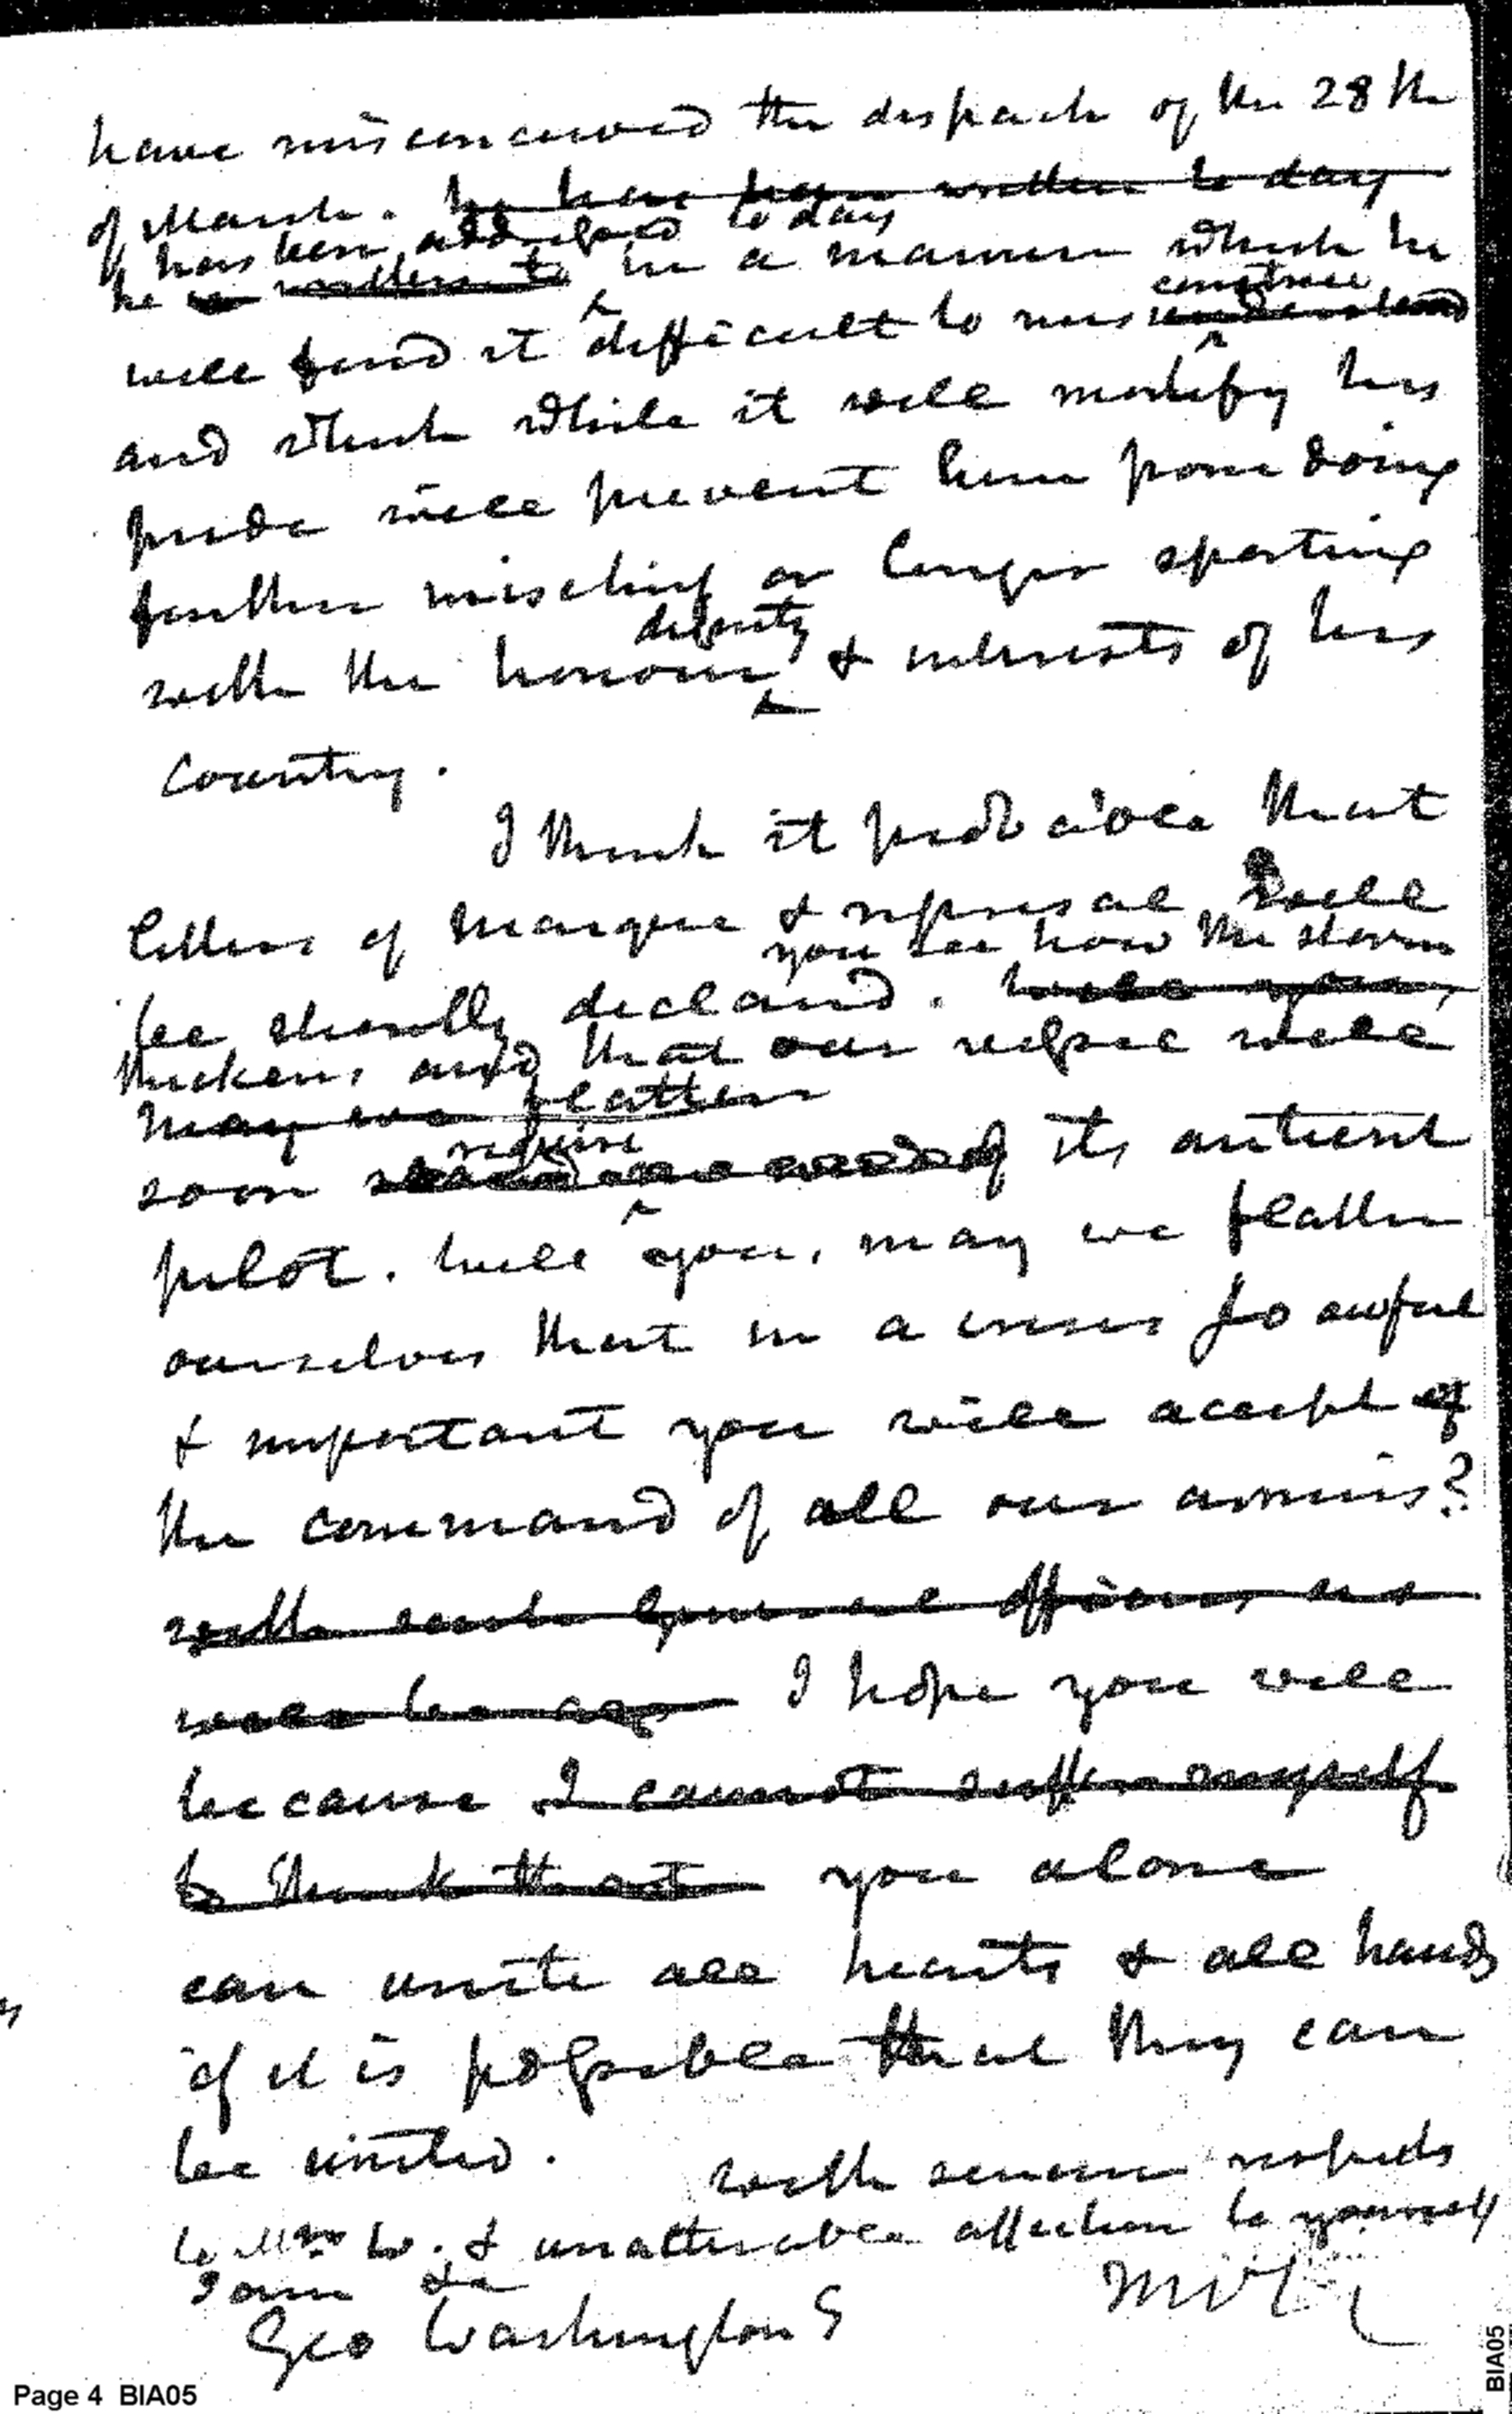 have misconceived the dispatch of the 28th
of March. he have been written to day
has been addressed to day
he is written to in a manner which he
construe
will find it difficult to misunderstand
and which while it will mortify his
pride will prevent him from doing
further mischief or longer sporting
dignity
with the honour & interests of his
country.
I think it probable that
letters of marque & reprisal will
you see how the storm
be shortly declared. will you,
thickens and that our vessel will
may we flatter
require
soon stand in need of its antient
pilot. will you, may we flatter
ourselves that in a crisis so awful
& important you will accept of
the command of all our armies?
with such general officers as
will be I hope you will
because I cannot suffer myself
to think that you alone
can unite all hearts & all hands
if it is possible that they can
be united.
with sincere respects
to Mrs W. & unalterable affection to yourself
I am &a
Geo Washington
Page 4 BIA05
BIA05